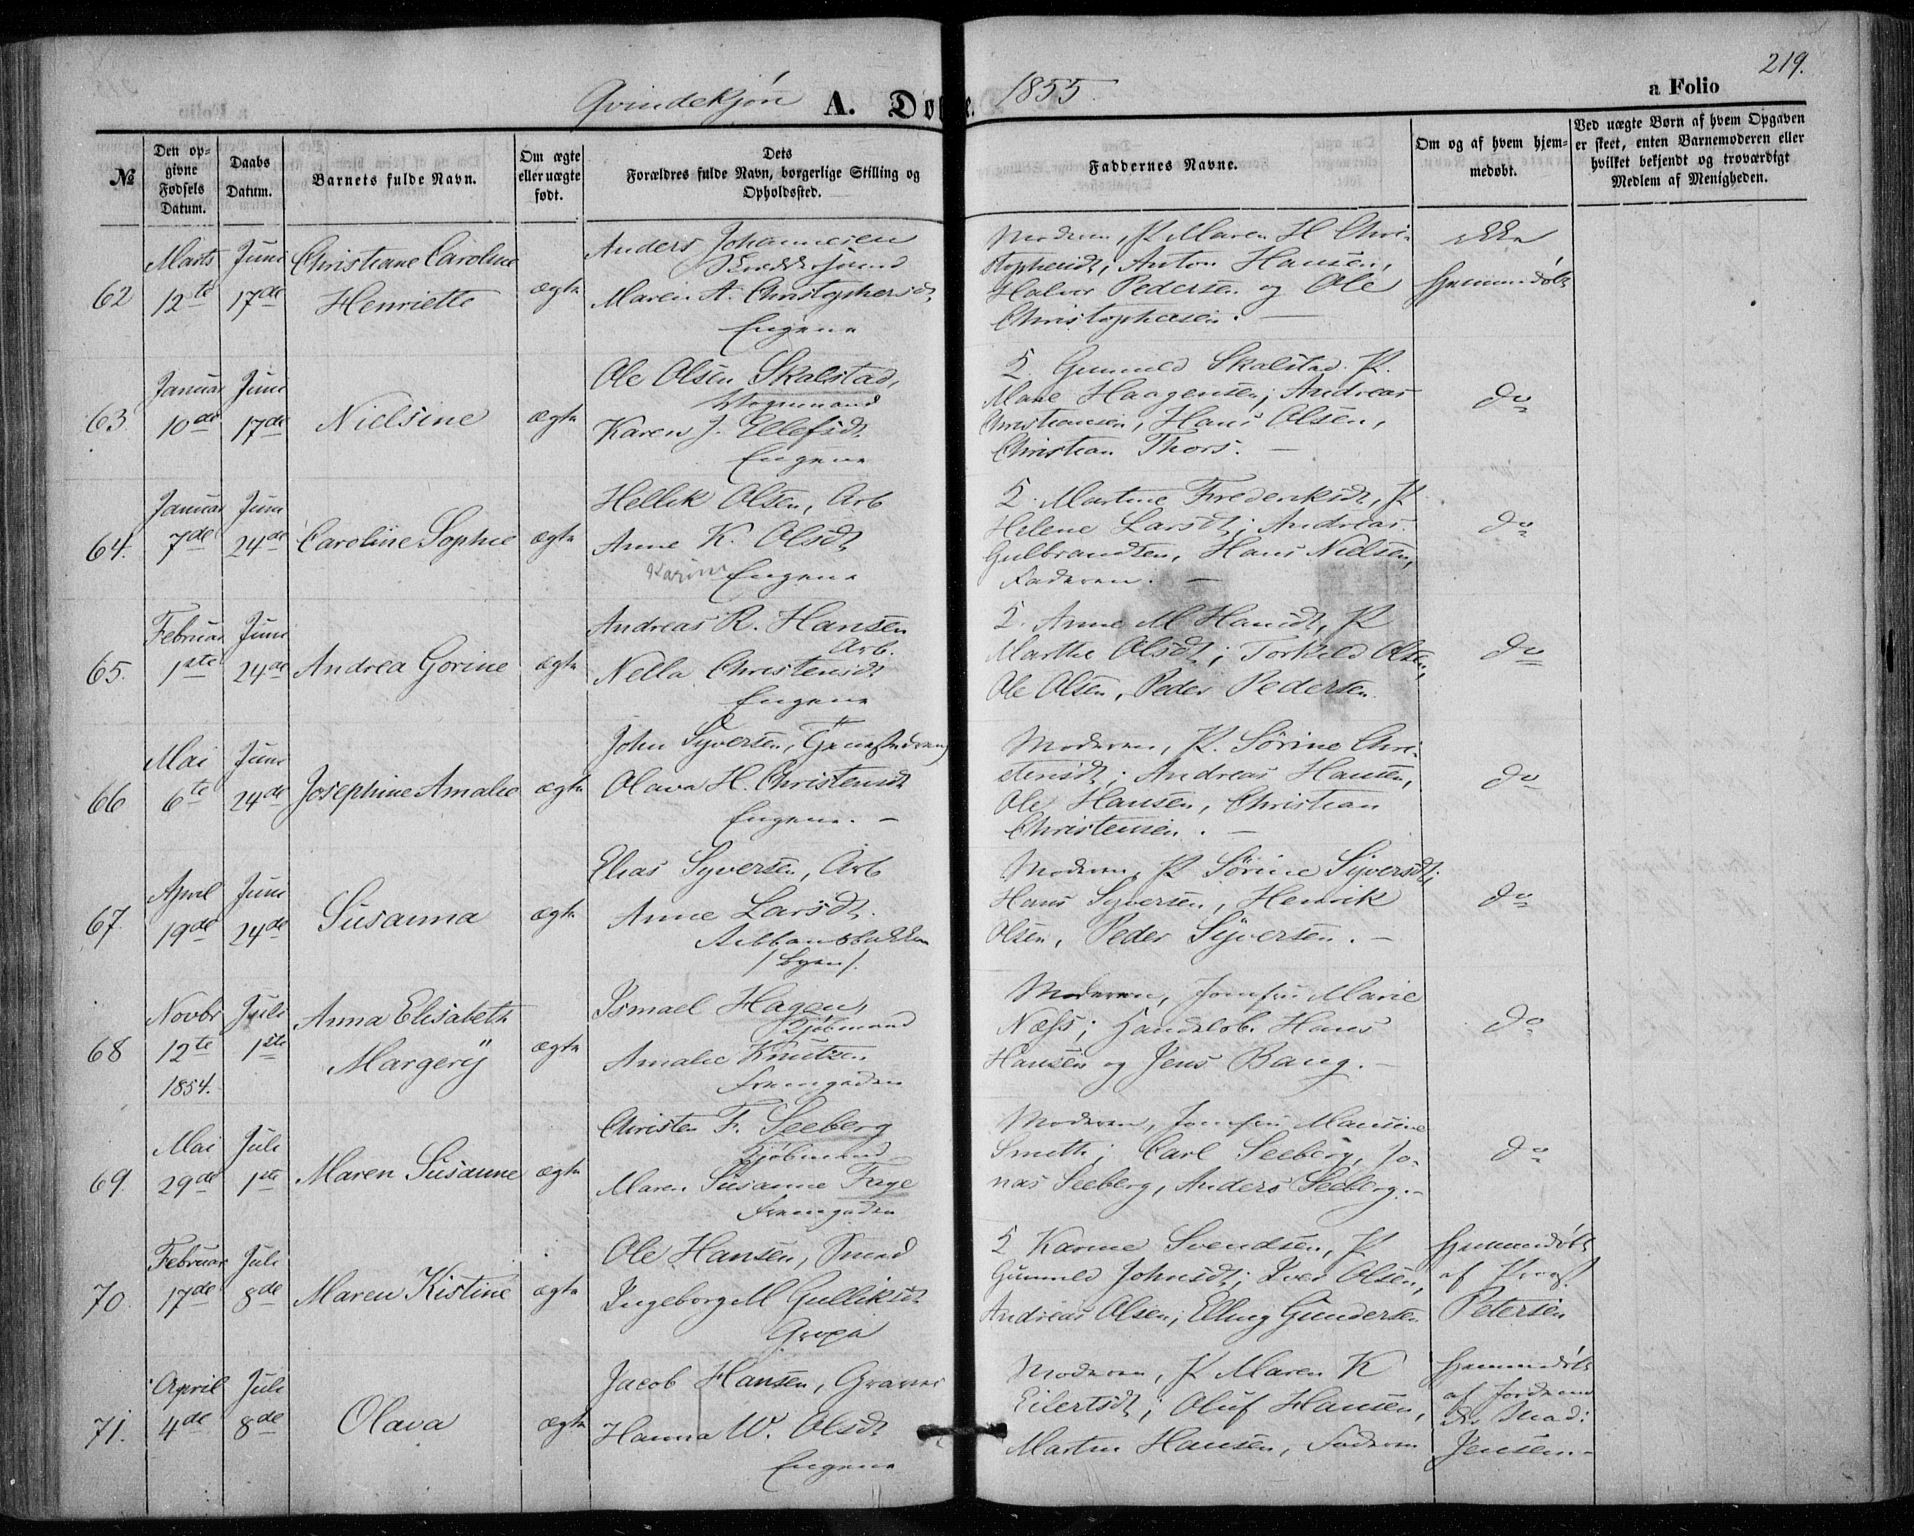 219.
Qvindekjøn A. Døbte. 1855.
a Folio
№
Den op-
givne
Fødsels
Datum.
Daabs
Datum.
Barnets fulde Navn.
Om ægte
eller uægte
født.
Dets
Forældres fulde Navn, borgerlige Stilling og
Opholdssted.
Faddernes Navne.
Om og af hvem hjem-
medøbt.
Ved uægte Børn af hvem Opgaven
er skeet, enten Barnemoderen eller
hvilket bekjendt og troværdigt
Medlem af Menigheden.
62
Marts
12te
Juni
17de
Christiane Caroline
Henriette
ægte
Anders Johannesen
Maren A. Christophersdt
Engene
Moderen, P. Maren H Chri-
stophersdt, Anton Hansen,
Halvor Pedersen og Ole
Christophersen. —
ikke
hjemmedøbt
63
Januar
10de
Juni
17de
Nielsine
ægte
Ole Olsen Skalstad,
Vognmand
Karen J. Ellefsdt
Engene
Q. Gunnild Skalstad. P.
Maue Haagensen; Andreas
Christiansen, Hans Olsen,
Christian Thors. —
do
64.
Januar
7de
Juni
24de
Caroline Sophie
ægte
Hellik Olsen, Arb
Anne K. Olsdt
Karine Engene
Q. Martine Frederiksdt, P.
Helene Larsdt; Andreas
Gulbrandsen, Hans Nielsen,
Faderen. —
do
65.
Februar
1ste
Juni
24de
Andrea Gorine
ægte
Andreas R. Hansen
Arb.
Nella Christensdt
Engene
Q. Anne M Hansdt, P
Marthe Olsdt; Torkild Olsen,
Ole Olsen, Peder Pedersen.
do
66
Mai
6te
Juni
24de
Josephine Amalie
ægte
John Syversen,
Olava H. Christensdt
Engene. —
Moderen, P. Sørine Chri-
stensdt; Andreas Hansen,
Ole Hansen, Christian
Christensen. —
do
67.
April
19de
Juni
24de
Susanna
ægte
Elias Syversen, Arb
Anne Larsdt.
/Byen/.
Moderen, P Sørine Syversdt;
Hans Syversen, Henrik
Olsen, Peder Syversen. —
do
68
Novbr
12te
1854.
Juli
1ste
Anna Elisabeth
Margerÿ
ægte
Ismael Hagen,
Kjøbmand
Amalie Knutzen
Strømgaden
Moderen, Jomfru Marie
Næss; Handelsb. Hans
Hansen og Jens Bang. —
do
69.
Mai
29de
Juli
1ste
Maren Susanne
ægte
Christen F. Seeberg
Kjøbmand
Maren Susanne Faye
Strømgaden
Moderen, Jomfru Mausine
Smith; Carl Seeberg, Jo-
nas Seeberg, Anders Seeberg. —
do
70.
Februar
17de
Juli
8de
Maren Kistine
ægte
Ole Hansen, Smed
Ingeborg M Gulliksdt
Gropa
Q Karine Svendsen, P
Gunnild Johnsdt; Iver Olsen,
Andreas Olsen; Elling Gundersen
hjemmedøbt
af Præst
Petersen
71.
April
4de
Juli
8de
Olava
ægte
Jacob Hansen, Graver
Hanna W. Olsdt
Engene
Moderen, P Maren K
Eilertsdt; Oluf Hansen,
Martin Hansen, Faderen
hjemmedøbt
af Jordemo
der Mad:
Jensen. —